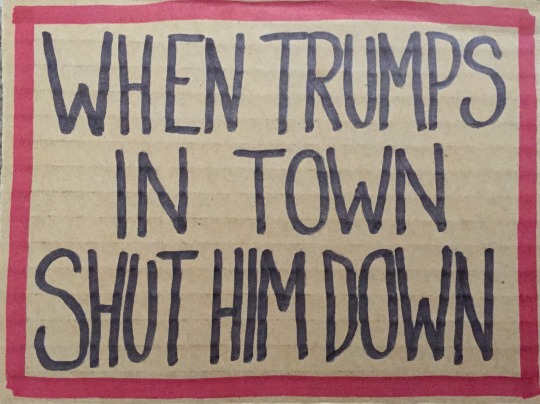 WHEN TRUMPS
IN TOWN
SHUT HIM DOWN